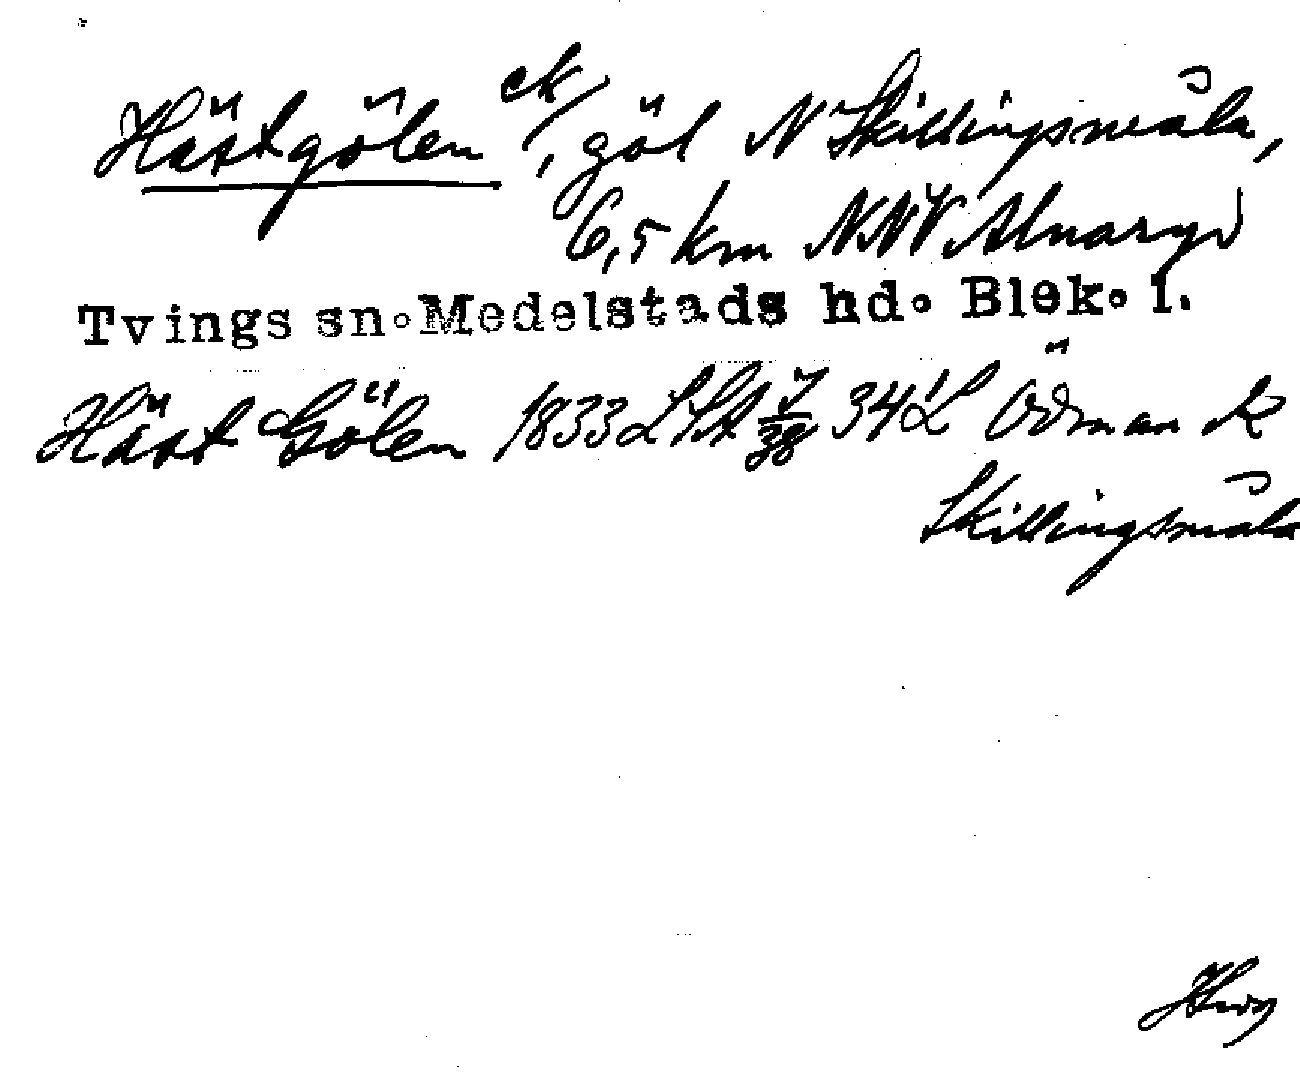 Hästgölen ek/, göl N Skillingsmåla,
6,5 km NNV Alnaryd
Tvings sn. Medelstads hd. Blek. l.
Häst Gölen 1833 LSA 34 L Ödman k
Skillingsmåla